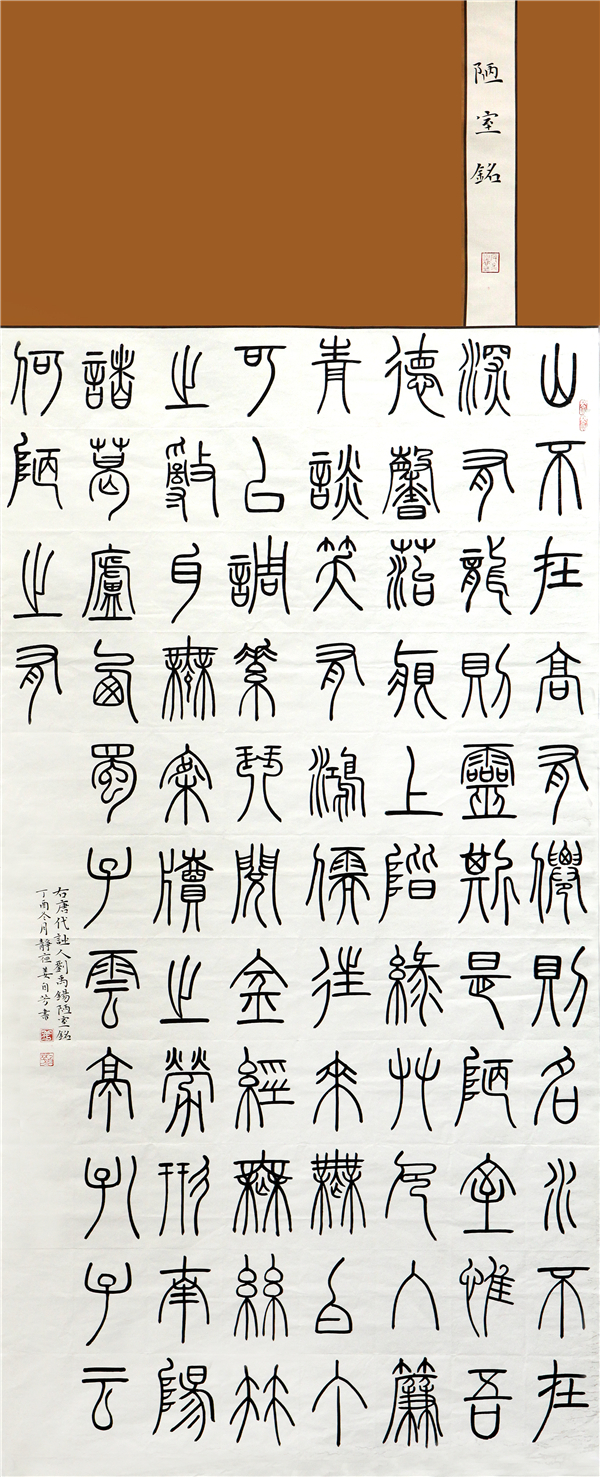 陋室銘
山不在高有僊則名水不在
深有龍則靈斯是陋室惟吾
德馨菭痕上階綠艸色入簾
青談笑有鴻儒往來無白丁
可以調素琴閱金經無絲竹
之亂耳無案牘之勞形南陽
諸葛廬西蜀子雲亭孔子云
何陋之有
右唐代詩人劉禹錫陋室銘
丁酉冬月靜姜自書